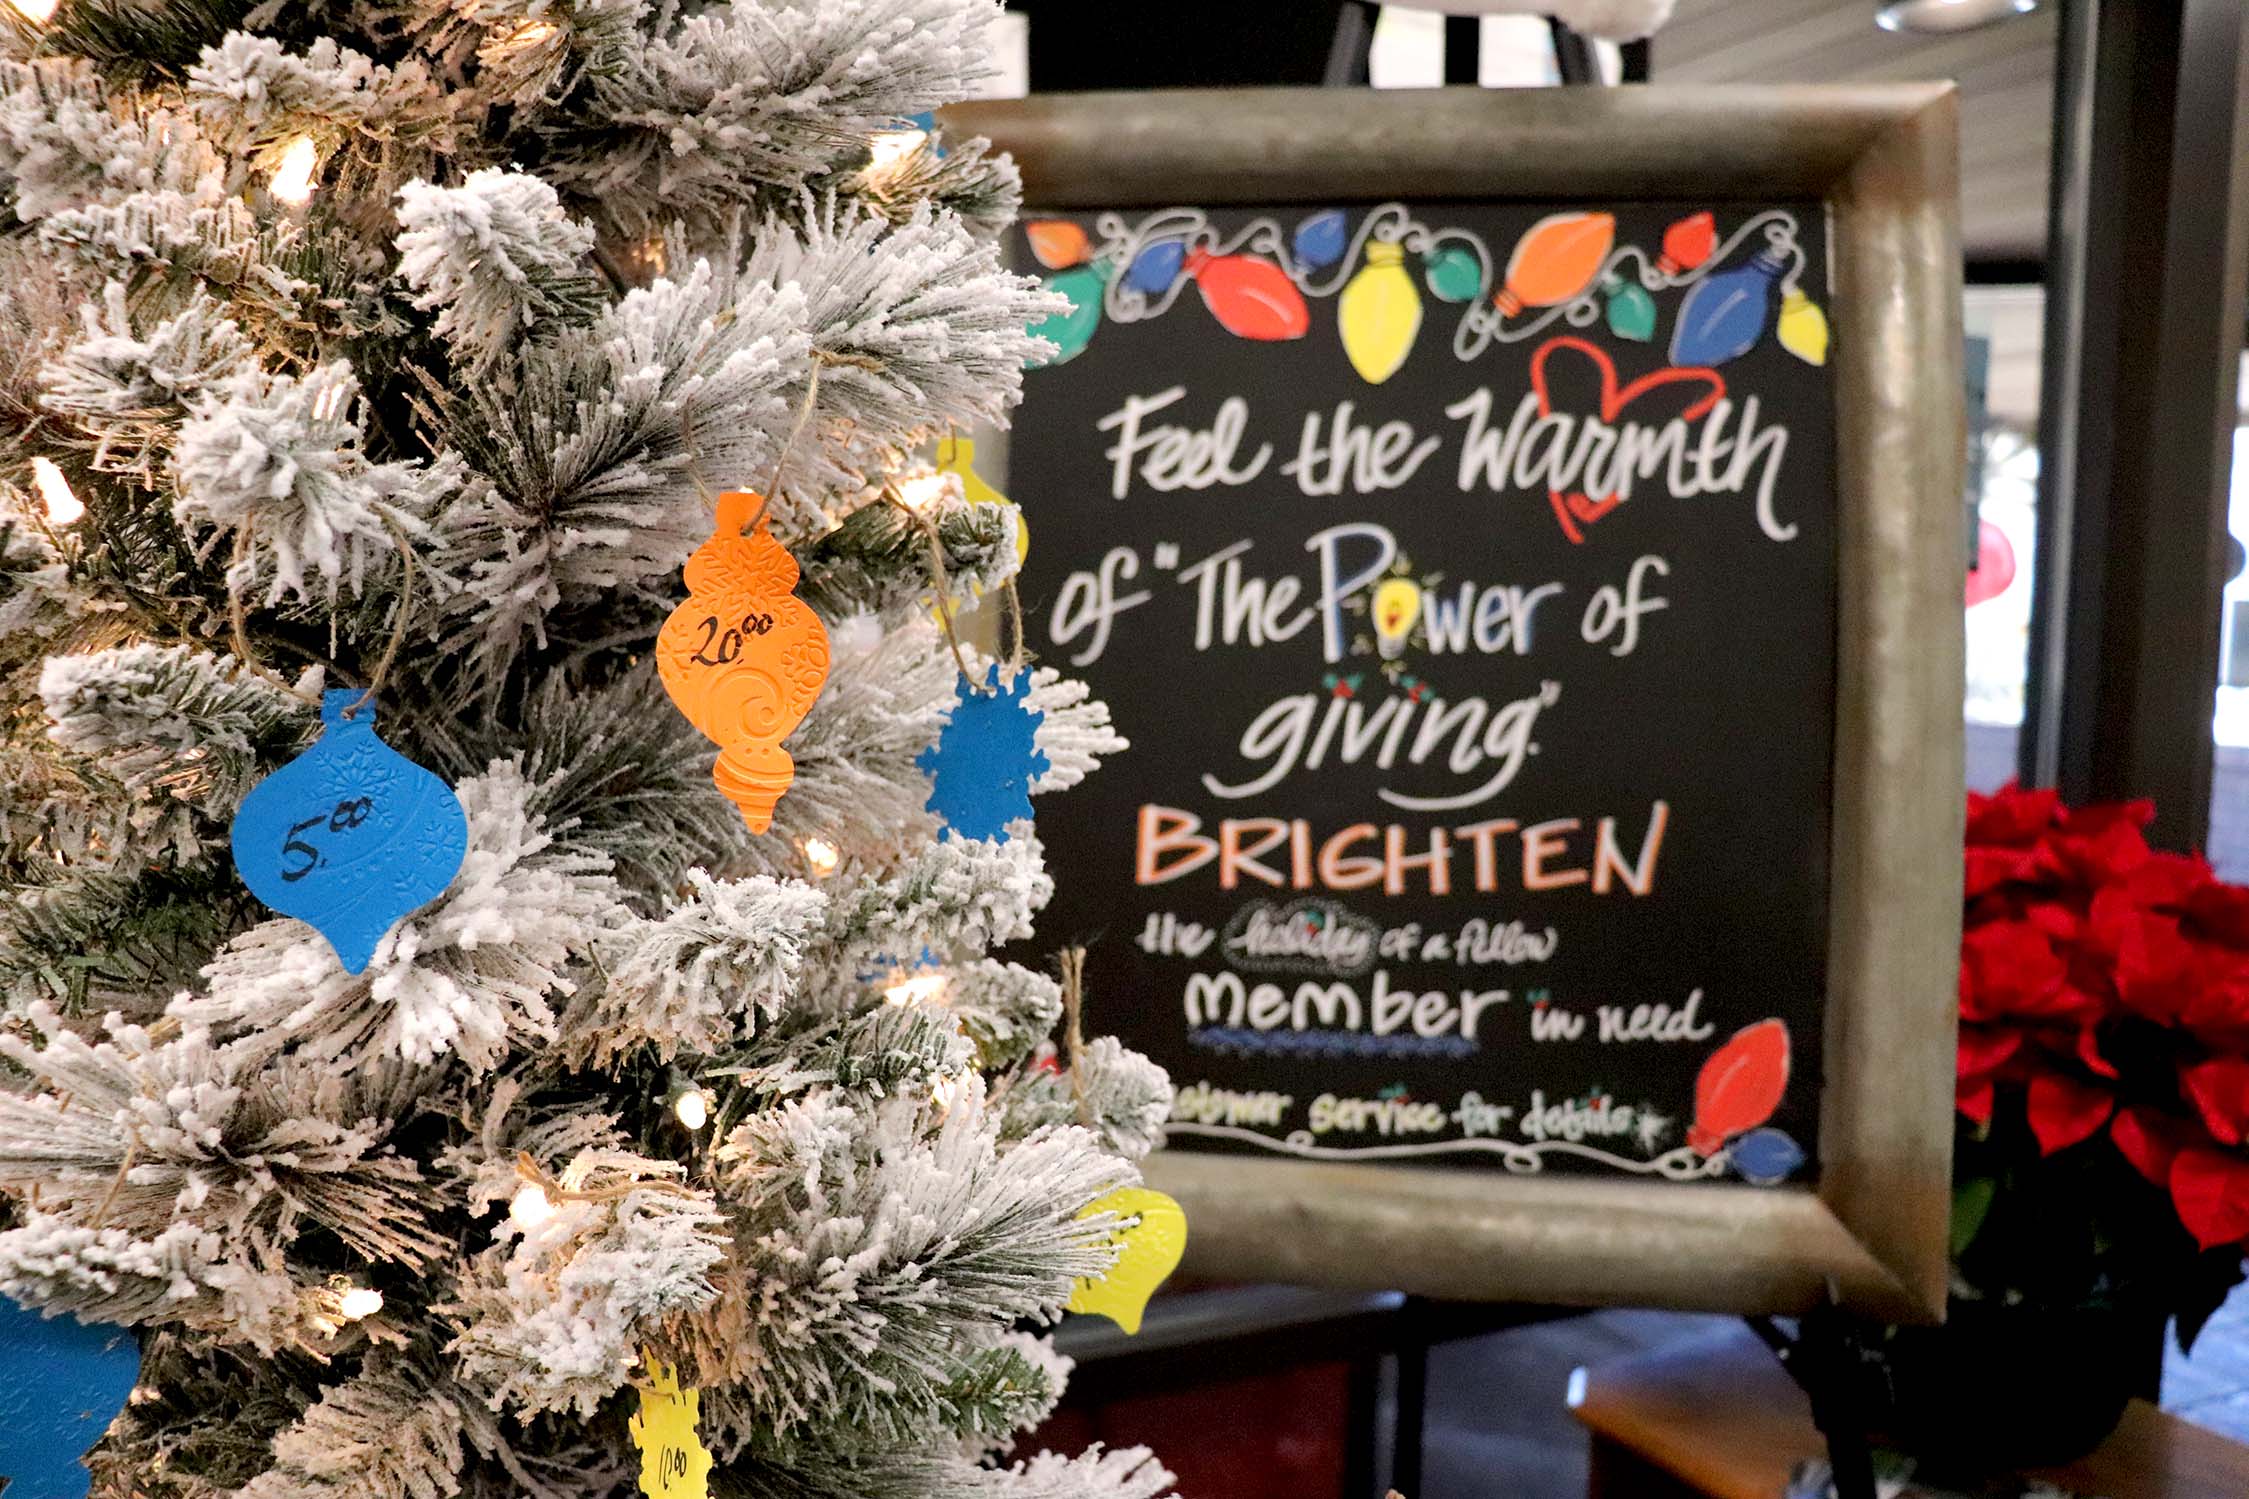 Feel the Warmth
of "The Power of
giving."
BRIGHTEN
the holiday of a fellow
member in need
service for details
20.00
5.00
10.00